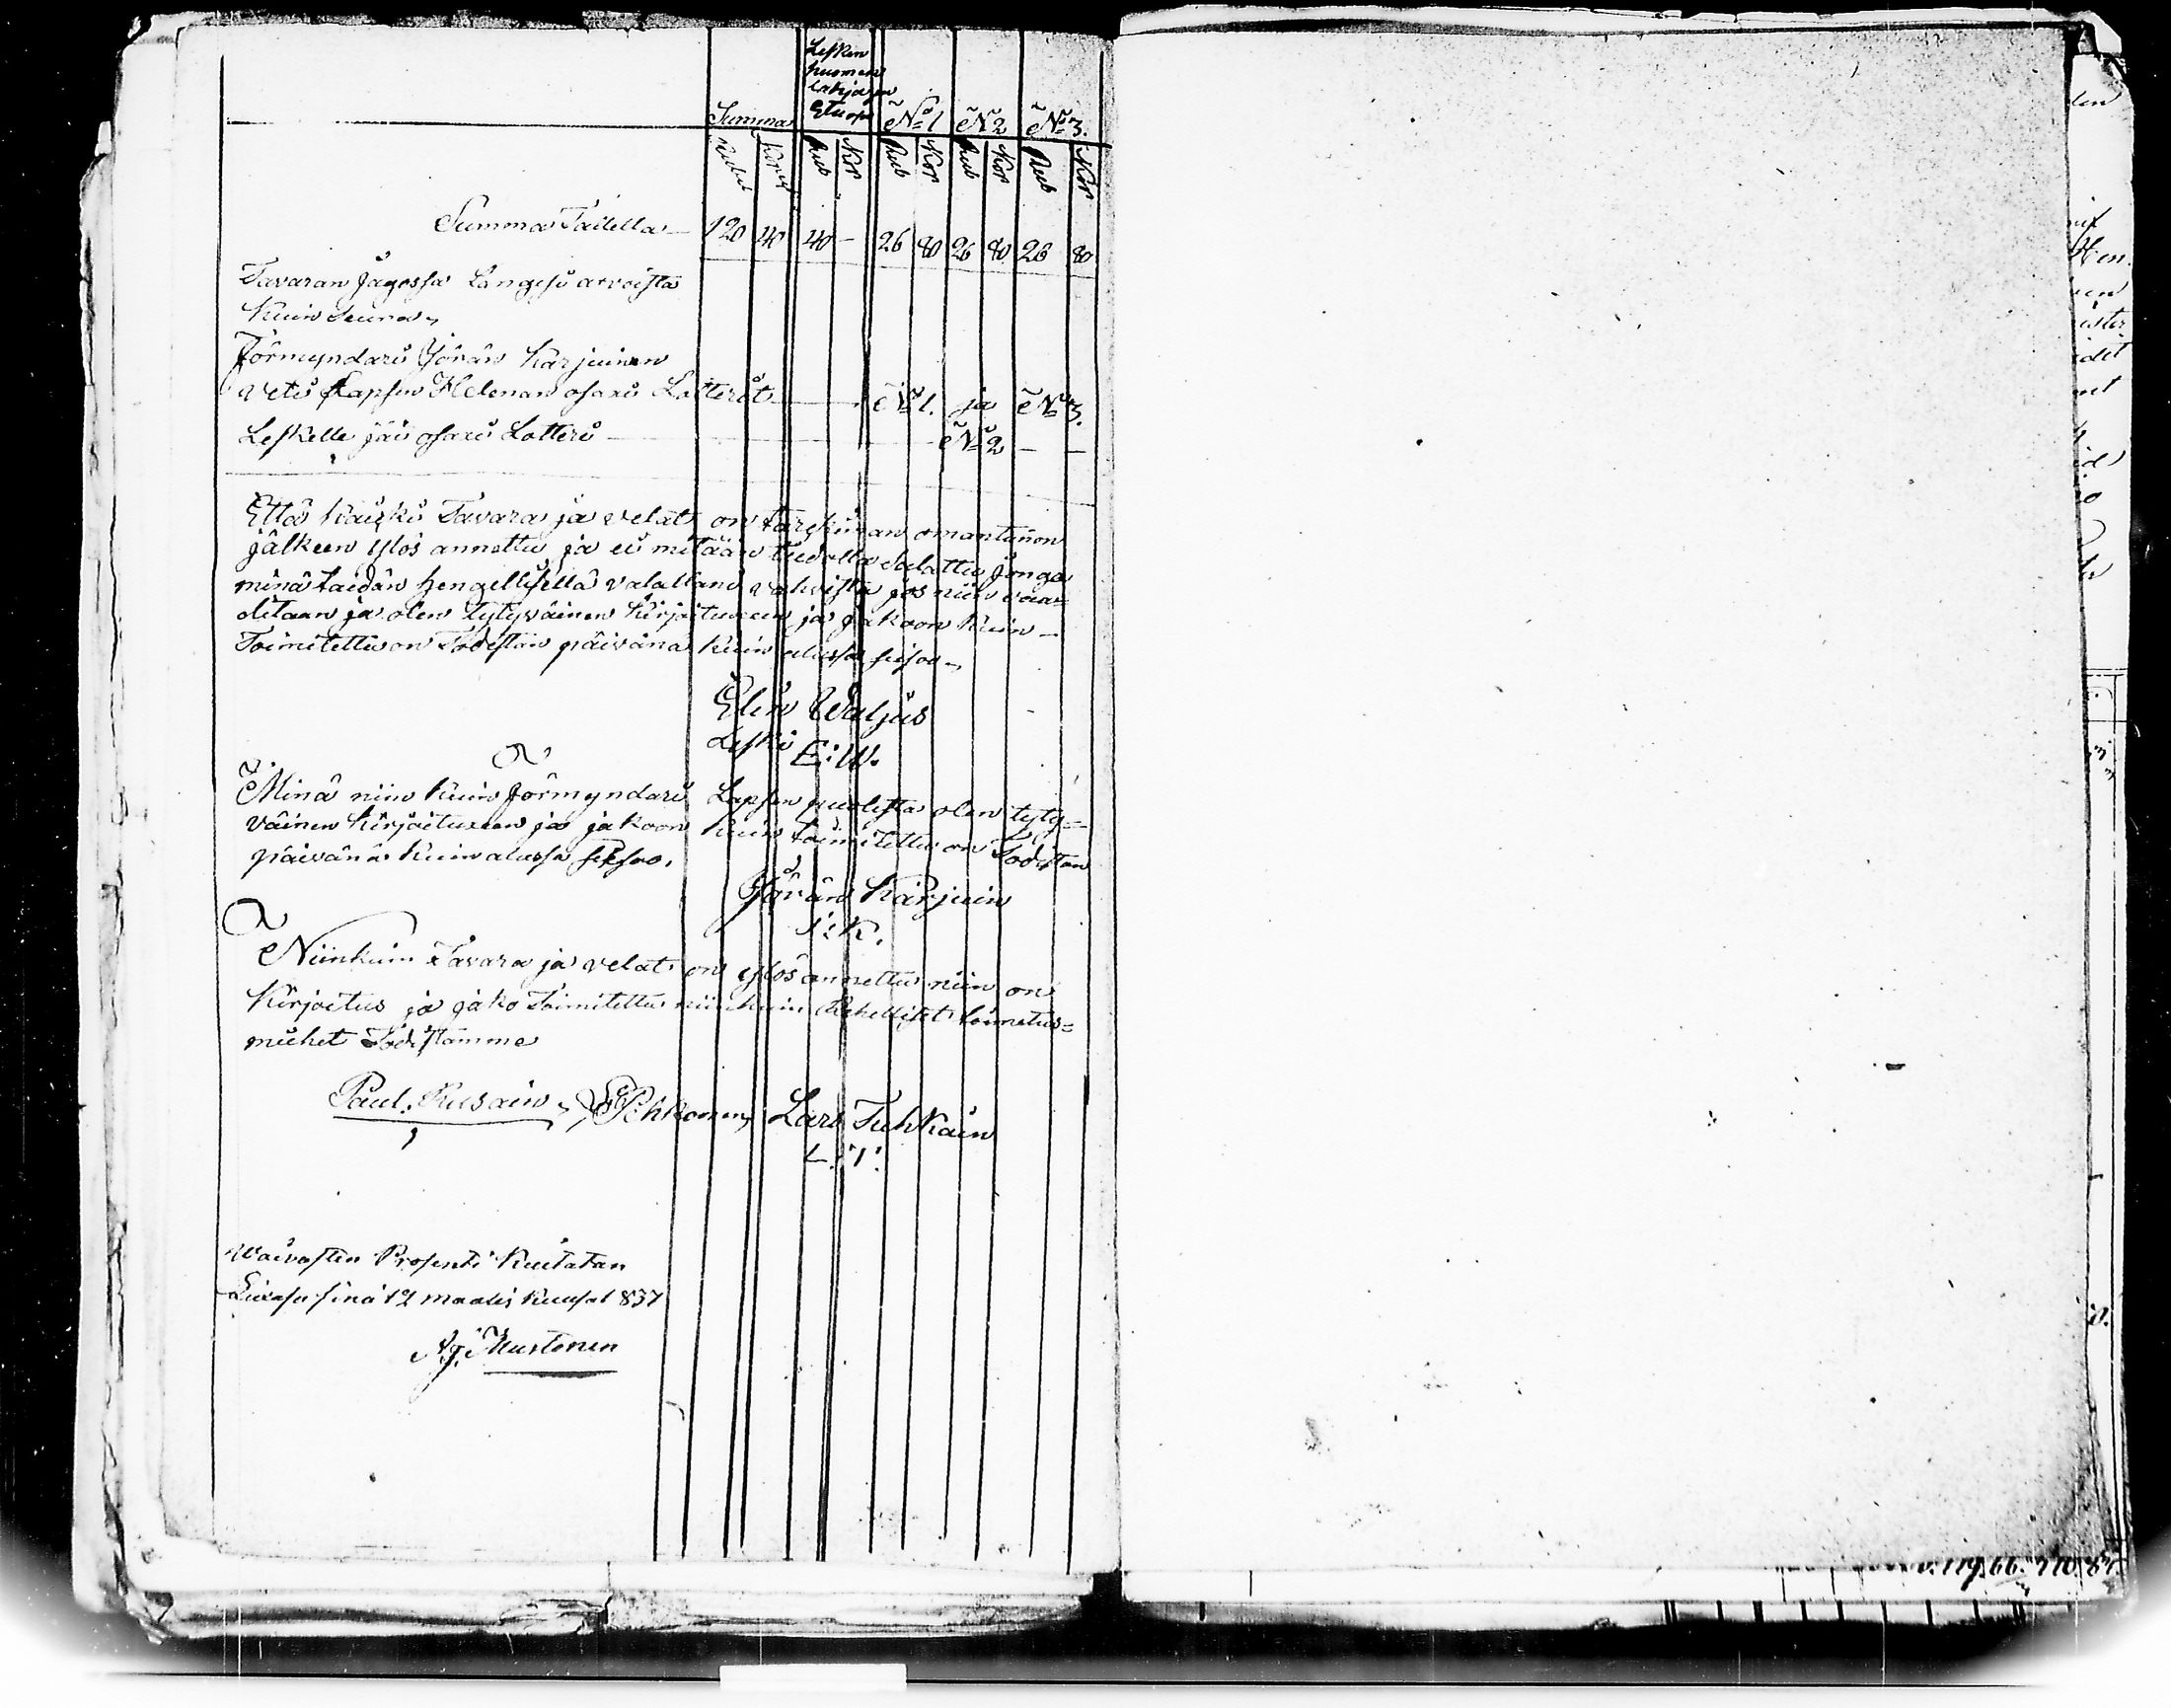 Lesken
huomen
lahja ja
Etuosa
Summa № 1 № 2 № 3.
Rubel Kopek Rub Kop Rub Kop Rub Kop Rub Kop
Summa Taikella — 120 40 40 — 26 80 26 80 26 80
Tavaran Jagossa Langesi arvoista
kuin seura,
Förmyndari Jörän Karjuinen
veti Lapsen Helenan osaxi Lotterit — № 1. ja № 3.
Leskelle jäi osaxi Lotteri — № 2 — —
Ettâ kaikki Tavara ja velat on tarkiman omantunnon
jälkeen ylös annettu ja ei mitään tiedolla salattu jonga
minä taidan hengellisellä valallani vahvista jos niin vaa=
ditaan ja olen tytyväinen kirjoituxeen ja jakoon kuin —
Toimitettu on Todistan päivänä kuin alussa seisoo,
Elin Waljus
Leski E: W.
Minä niin kuin förmyndari Lapsen puolesta olen tyty=
väinen kirjoituxeen ja jakoon kuin toimitettu on Todistan
päivänä kuin alussa seisoo.
Jörän Karjuin
J: K.
Niinkuin Tavara ja velat on ylös annettu niin on
Kirjoitus ja jako Toimitettu niin kuin Rehelliset toimitus=
miehet Todistamme
Paul. Kusain, Pehkonen, Lars Tuhkain
L. T.
Waivasten Prosenti kuitatan
sinä 12 maalis kuusa 1837
Mustonen